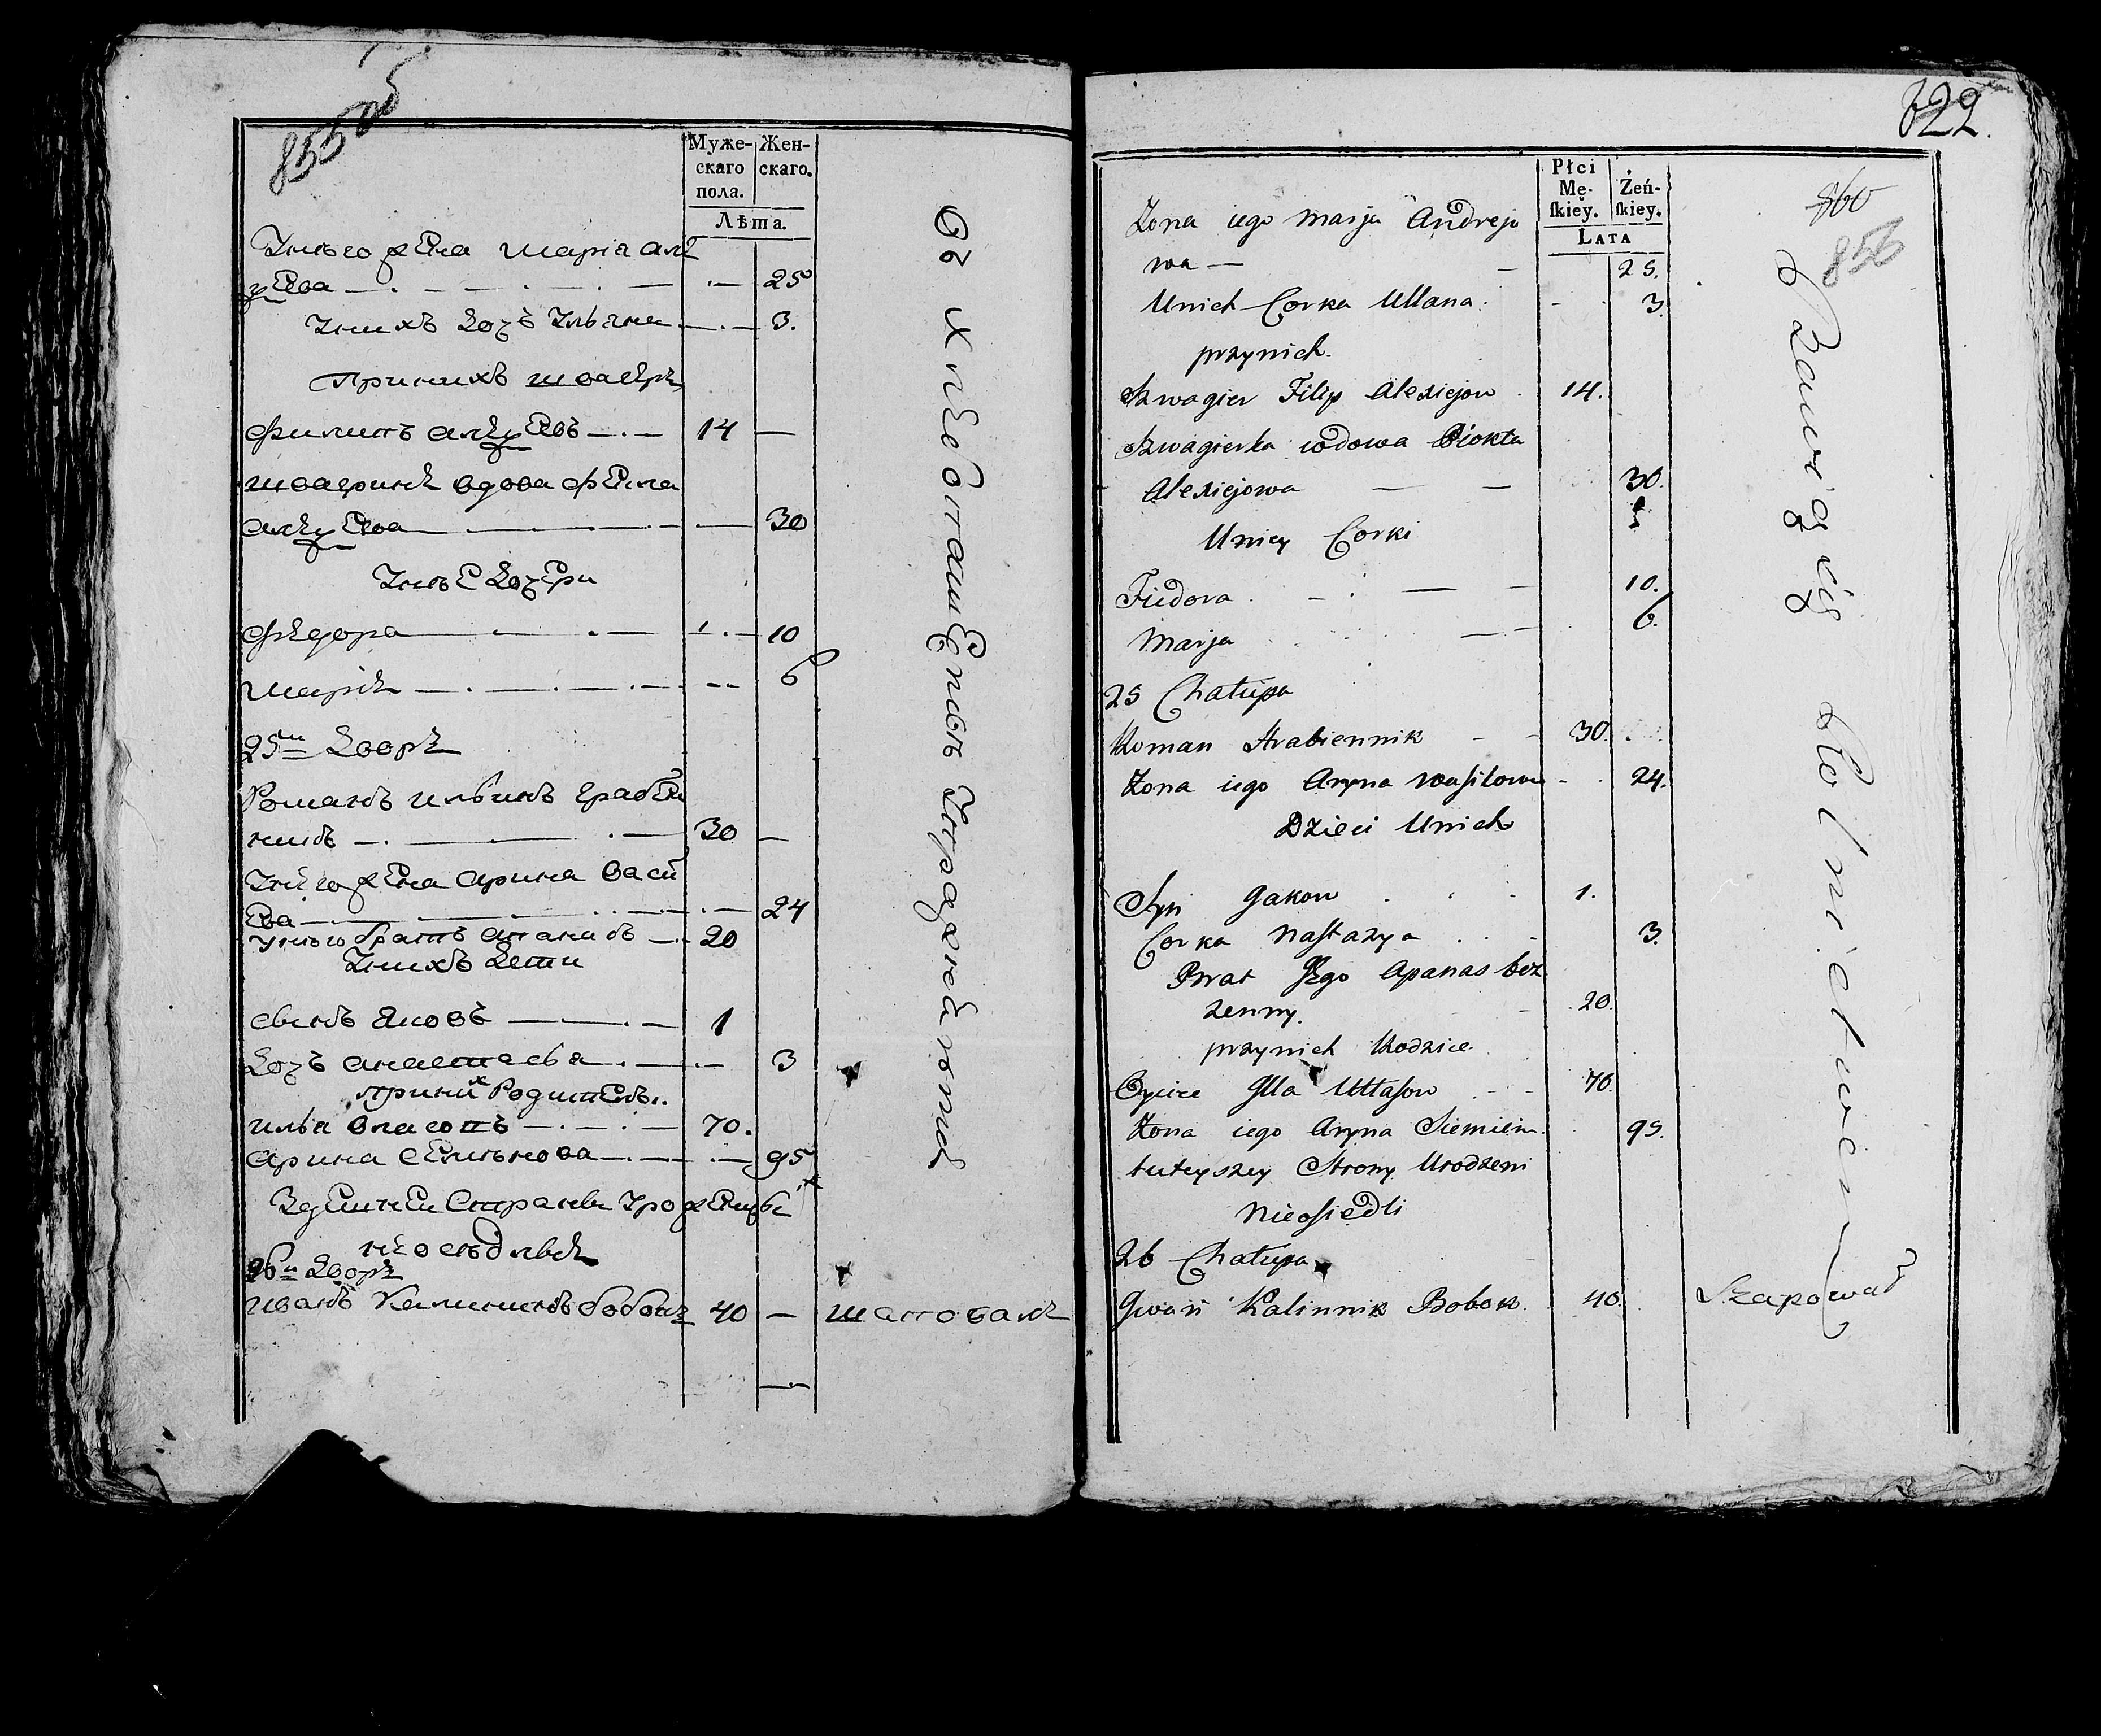 855 об
Муже-
скаго
пола.
Жен-
скаго.
Лѣта.
Унего жена Мария але
ѯева 25
Унихъ доч Ульяна 3.
Принихъ шваеръ
Филипъ алеѯевъ 14
шваерина вдова Фекла
алеѯева 30
Унее дочери
Федора 10
Мария 6
25й дворъ
Романъ ильинъ Грабен
никъ 30
Унего жена арина васил
ева 24
Унего братъ апанасъ 20
Унихъ дети
Сынъ Яковъ 1
Доч анастасья 3
приних родители
илья власовъ 70.
арина Семенова 95
Здешней Стараны урожденцы
неоседлые
26й дворъ
иванъ Калининъ бобокъ 40 — шаповалъ
Въ хлебопашенномъ упражнении
822.
860
856
Płci
Mę-
ſkiey.
Żeń-
ſkiey.
LATA
Zona iego Marja Andrejo
wa — 25.
Unich Corka Ullana 3.
przynich.
Szwagier Filip Alexiejow 14.
Szwagierka wdowa Fiokta
Alexiejowa 30.
Uniey Corki
Fiedora 10.
Marja 6.
25 Chałupa
Roman Hrabiennik 30.
Zona iego Aryna Wasilowa 24.
Dzieci Unich
Syn Jakow 1.
Corka Nastazya 3.
Brat Jego Apanas bez
zenny. 20.
przynich Rodzice.
Oyciec Jlla Ułłasow 70.
Zona iego Aryna Siemien. 95.
tuteyszey Strony Urodzeni
Nieosiedli
26 Chałupa
Jwan Kalinnik Bobok. 40. Szapował
Bawią się Rolnictwem